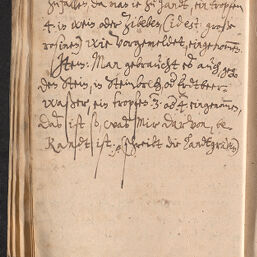 zufallen, da mas ie zu Zandt, ein tropfen
4. in wein oder Zibeben (id est, große
rosinen) wie vorgemeldet, eingenomen.
Stein: Man gebraucht es auch, geg
den Stein, in Steinbrech od Erdtbeer-
waßer, ein tropfen 3: od 4 eingenomen,
das ist so, was Mir dar von, be-
Kandt ist. schreibt die Landtgräfin)